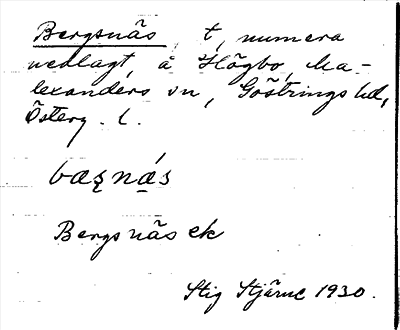 Bergsnäs, t, numera
nedlagt, å Högbo, Ma-
lexanders sn, Göstrings hd,
Österg. l.
bæʂnás
Bergsnäs ek
Stig Stjärne 1930.